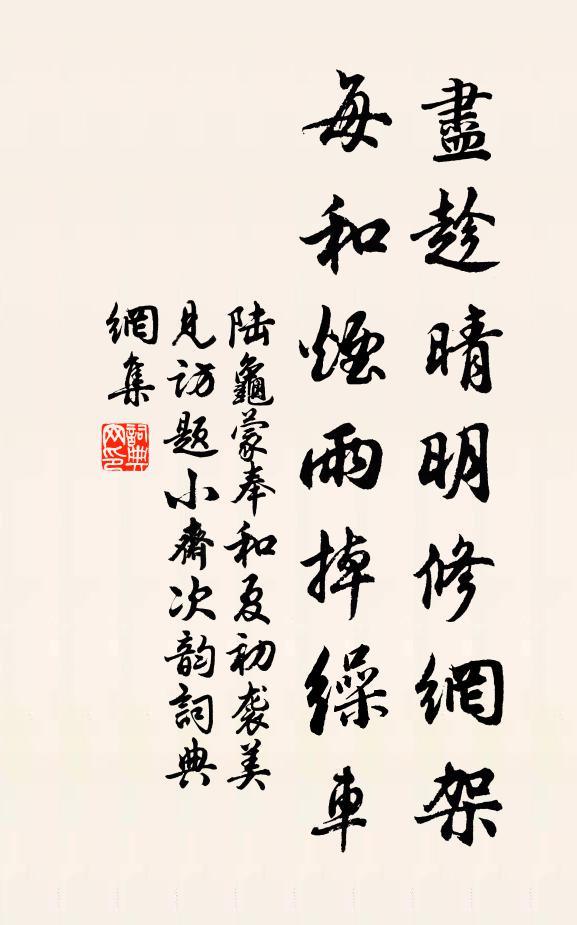 盡趁晴明修網架
每和煙雨掉繰車
陆龜蒙奉和夏初袭美
見访题小齋次韵詞典
網集
詞典
网印